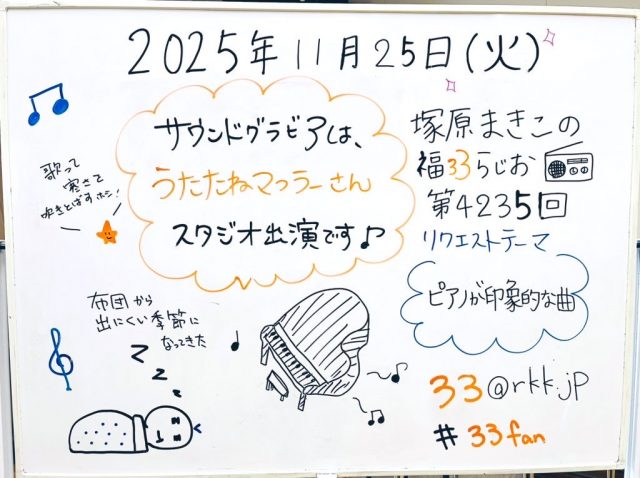 2025年11月25日(火)
サウンドグラビアは、
うたたねマフラーさん
スタジオ出演です♪
歌って
寒さで
吹きとばすホシ!
塚原まきこの
福33らじお
第4235回
リクエストテーマ
ピアノが印象的な曲
布団から
出にくい季節に
なってきた
z z z
33@rkk.jp
#33fan